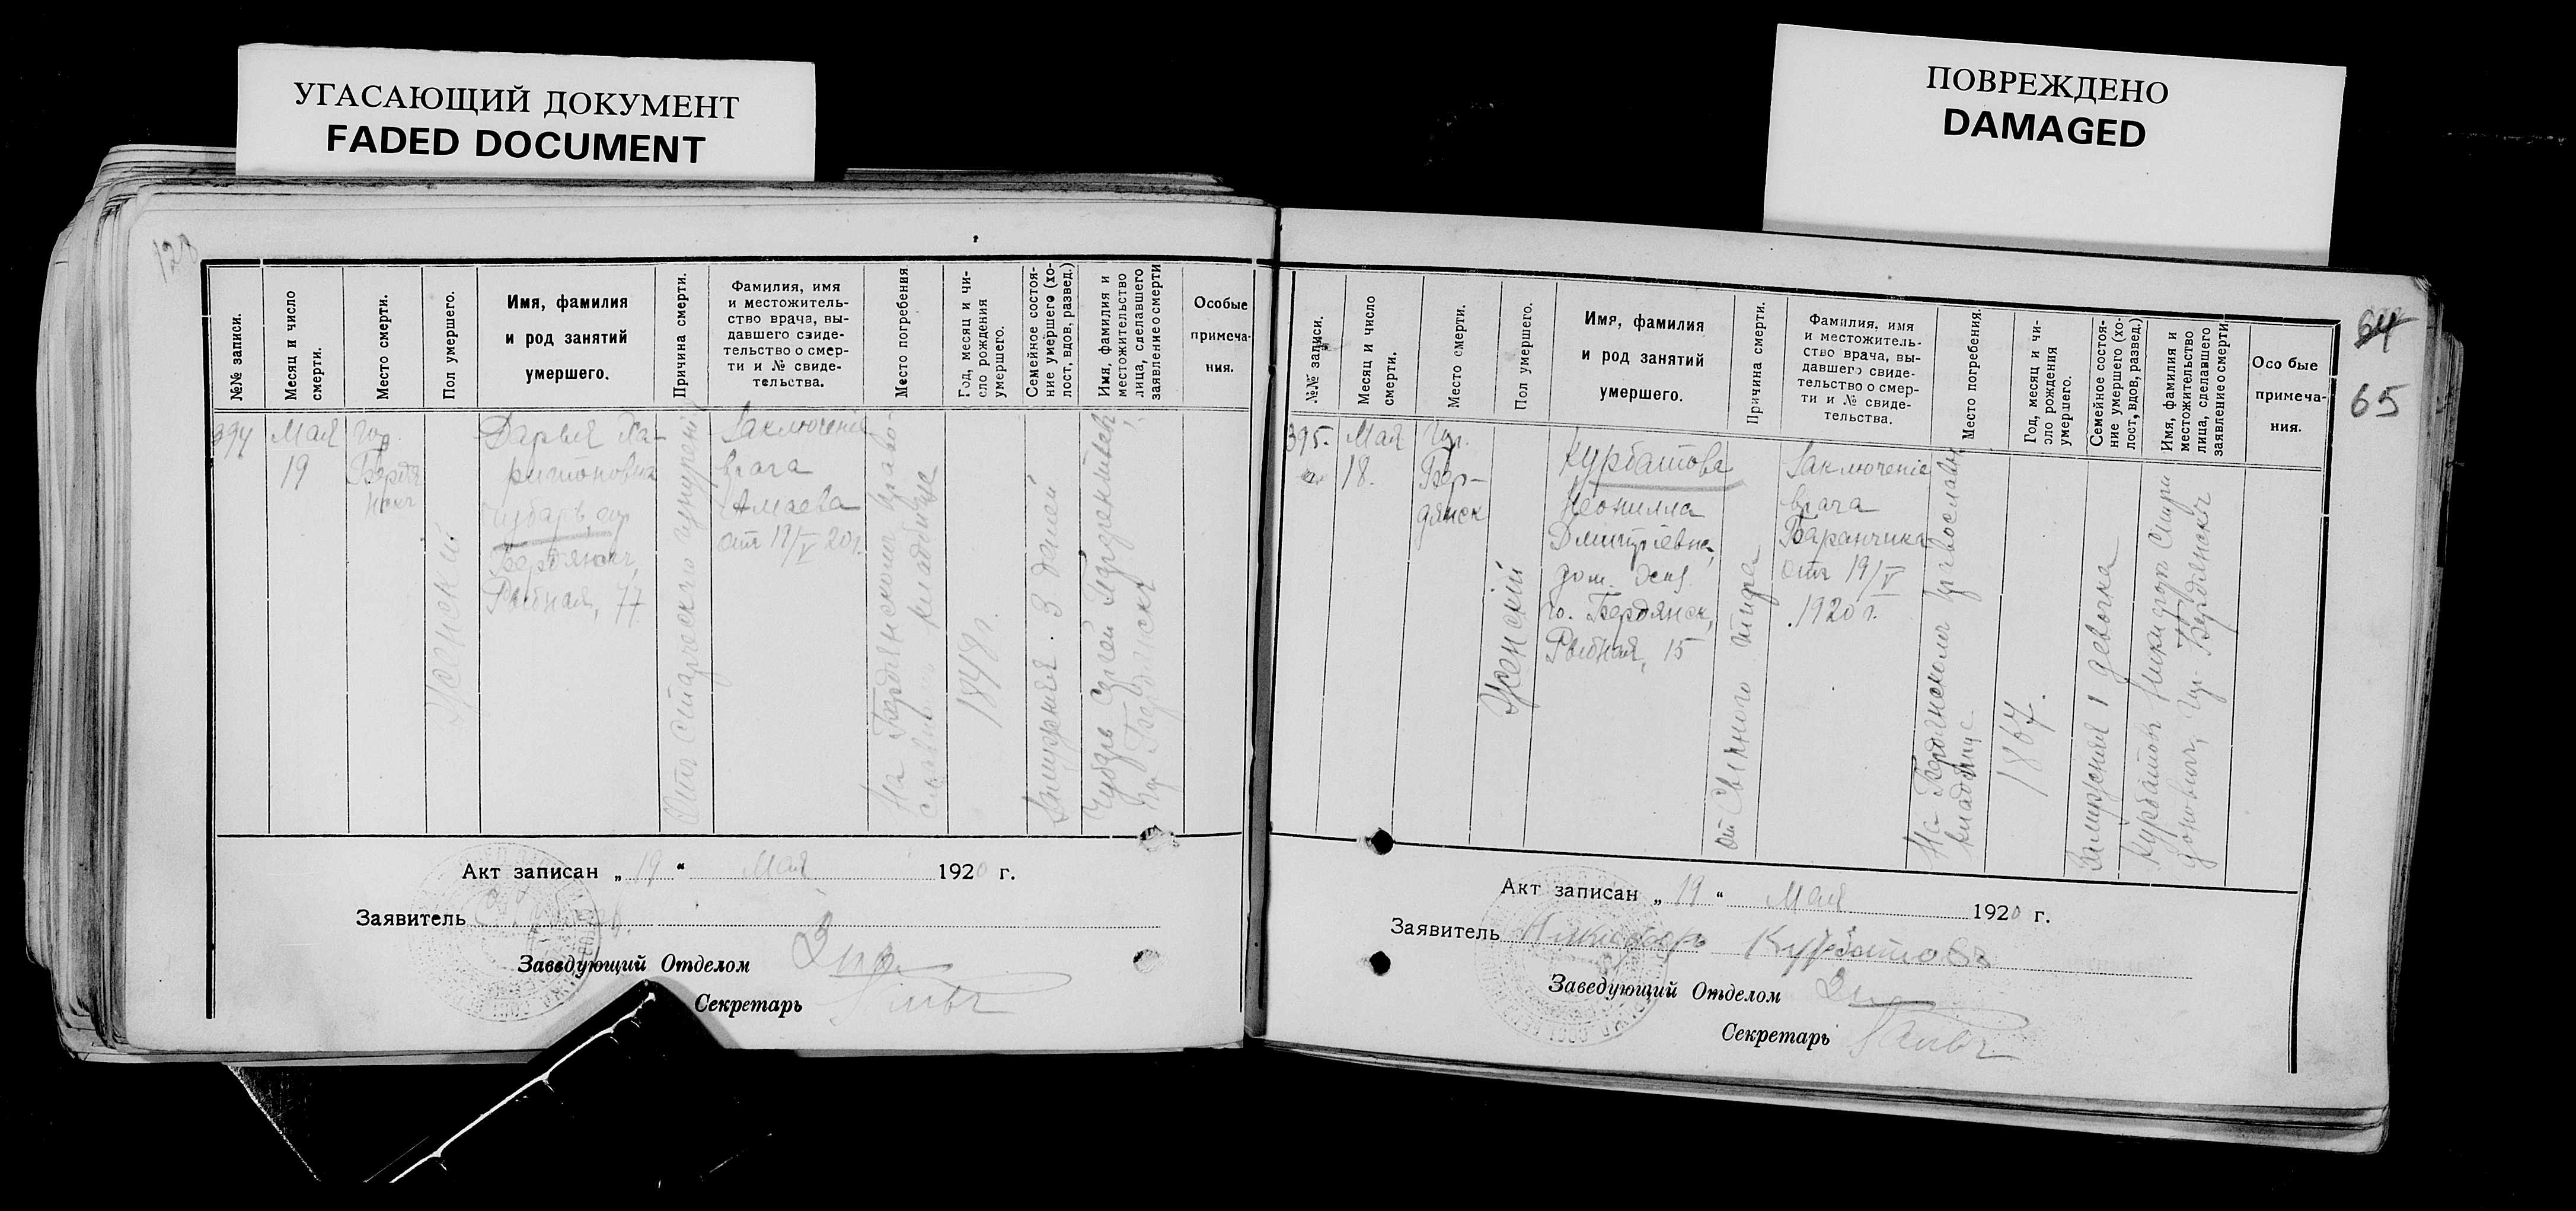 УГАСАЮЩИЙ ДОКУМЕНТ
FADED DOCUMENT
ПОВРЕЖДЕНО
DAMAGED
128
№№ записи.
Месяц и число
смерти.
Место смерти.
Пол умершего.
Имя, фамилия
и род занятий
умершего.
Причина смерти.
Фамилия, имя
и местожитель-
ство врача, вы-
давшего свиде-
тельство о смер-
ти и № свиде-
тельства.
Место погребения
Год, месяц и чи-
сло рождения
умершего.
Семейное состоя-
ние умершего (хо-
лост, вдов, развед.)
Имя, фамилия и
местожительство
лица, сделавшего
заявление о смерти
Особые
примеча-
ния.
394
Мая
19
гор.
Бердя
нскъ
Женский
Дарья Ха-
ритоновна
Чубарь гор
Бердянскъ,
Рыбная, 77
Отъ старческаго
Заключение
врача
Амаева
отъ 19/V 20 г.
На Бердянскомъ право-
славномъ кладбище
1848 г.
Замужняя. 3 детей
Чубарь Сергей
гор. Бердянскъ
Акт записан „ 19 “ Мая 1920 г.
Заявитель
Заведующий Отделом
Секретарь
64
65
№№ записи.
Месяц и число
смерти.
Место смерти.
Пол умершего.
Имя, фамилия
и род занятий
умершего.
Причина смерти.
Фамилия, имя
и местожитель-
ство врача, вы-
давшего свиде-
тельство о смер-
ти и № свиде-
тельства.
Место погребения.
Год, месяц и чи-
сло рождения
умершего.
Семейное состоя-
ние умершего (хо-
лост, вдов, развед.)
Имя, фамилия и
местожительство
лица, сделавшего
заявление о смерти
Особые
примеча-
ния.
395.
Мая
18.
гор.
Бер-
дянск
Женский
Курбатова
Неонилла
Дмитріевна,
дом. хоз.
го. Бердянск,
Рыбная, 15
от Сыпного тифа
Заключеніе
врача
Баранчика
отъ 19/V
1920 г.
На Бердянскомъ православн
кладбище
1867.
Замужняя 1 девочка
Курбатовъ Никифоръ Спири
доновичъ, гор. Бердянскъ
Акт записан „ 19 “ Мая 1920 г.
Заявитель Никифоръ Курбатовъ
Заведующий Отделом
Секретарь